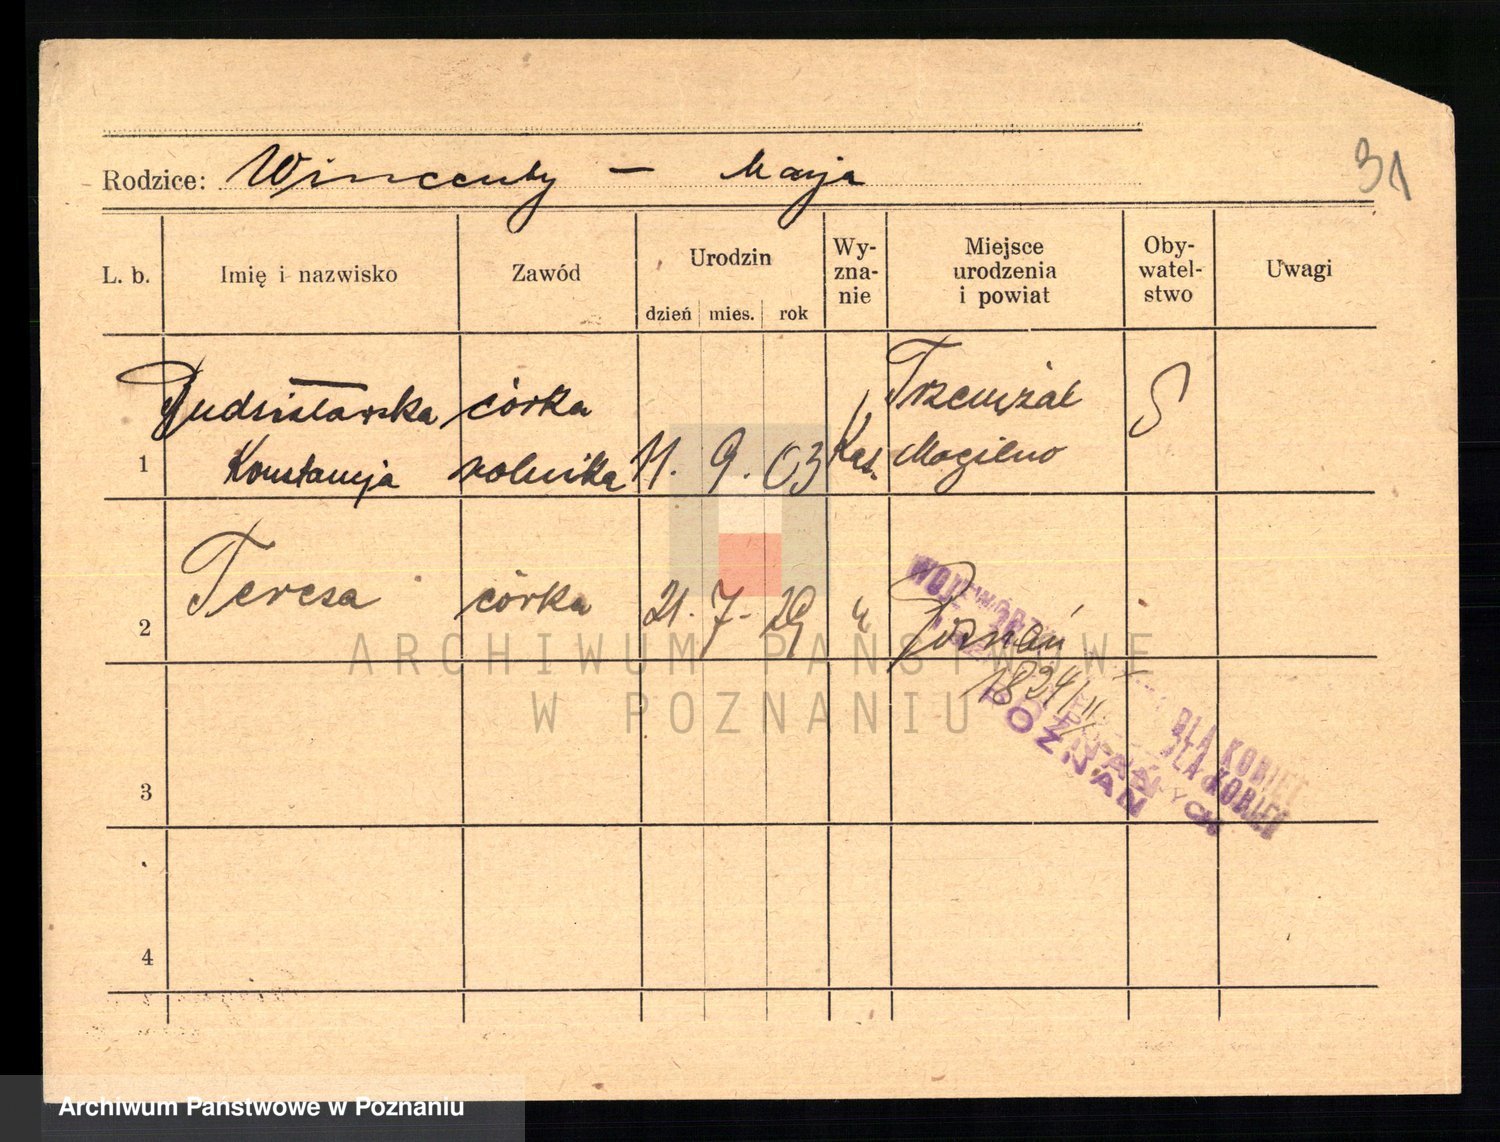 31
Rodzice: Wincenty — Marja
L. b. Imię i nazwisko Zawód Urodzin dzień mies. rok Wyznanie Miejsce urodzenia i powiat Obywatelstwo Uwagi
Dudzisławska córka Trzemżal
1 Konstancja rolnika 11. 9. 03 Kat. Mogilno
2 Teresa córka 21. 7. 29 " Poznań
1824/II
3
4
POZNAŃ
DLA KOBIET
DLA KOBIET
ARCHIWUM PAŃSTWOWE
W POZNANIU
Archiwum Państwowe w Poznaniu